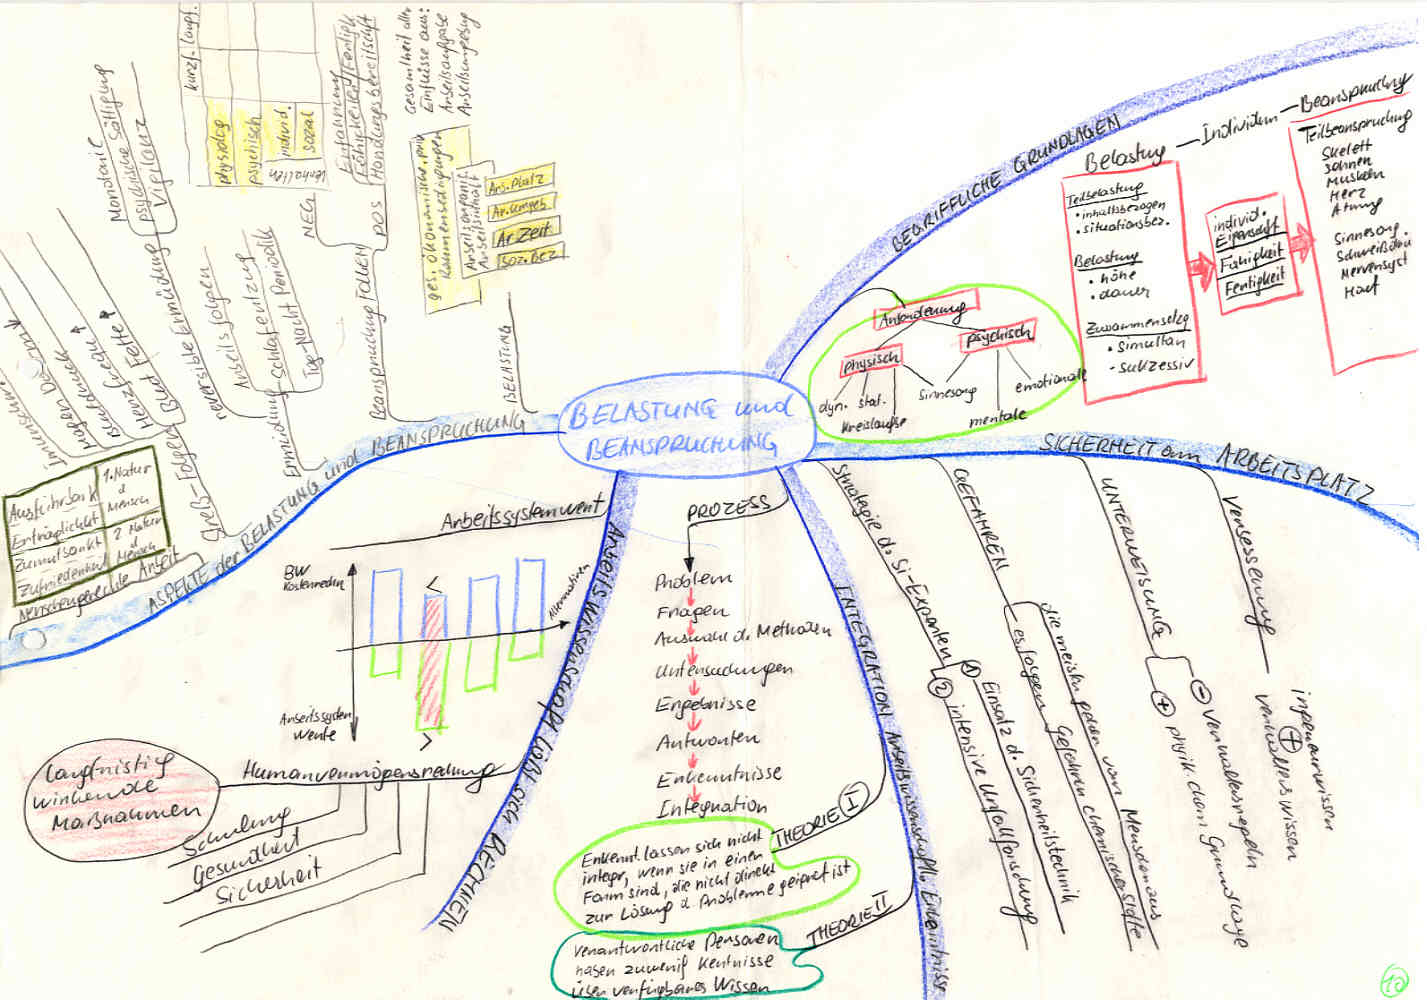 BELASTUNG und
BEANSPRUCHUNG
BEGRIFFLICHE GRUNDLAGEN
Belastung — Individuum — Beanspruchung
Teilbelastung
• inhaltsbezogen
• situationsbez.
Belastung
• höhe
• dauer
Zusammensetzg
• simultan
• sukzessiv
individ.
Eigenschaft
Fähigkeit
Fertigkeit
Teilbeanspruchung
Skelett
Sehnen
Muskeln
Herz
Atmung
Sinnesorg.
Schweißdrü
Nervensyst
Haut
Anforderung
physisch
psychisch
dyn. stat.
Kreislauf
Sinnesorg
mentale
emotionale
SICHERHEIT am ARBEITSPLATZ
Strategie d. Si-Experten
① Einsatz d. Sicherheitstechnik
② intensive Unfallforschung
GEFAHREN
die meisten gehen vom Menschen aus
es folgen Gefahren chemischer Stoffe
UNTERWEISUNG
⊖ Verhaltensregeln
⊕ physik chem Grundlage
Verbesserung
ingenieurwissen
⊕
verhaltenswissen
INTEGRATION Arbeitswissenschaftl. Erkenntnisse
PROZESS
Problem
Fragen
Auswahl d. Methoden
Untersuchungen
Ergebnisse
Antworten
Erkenntnisse
Integration
THEORIE I
Erkennt. lassen sich nicht
integr, wenn sie in einer
Form sind, die nicht direkt
zur Lösung d. Probleme geignet ist
THEORIE II
Verantwortliche Personen
haben zuwenig Kentnisse
über verfügbares Wissen
Arbeitswissenschaft läßt sich RECHNEN
Arbeitssystemwert
BW
Kostenrechn
Alternativen
Arbeitssystem
Werte
<
>
Humanvermögensrechnung
langfristig
wirkende
Maßnahmen
Schulung
Gesundheit
Sicherheit
ASPEKTE der BELASTUNG und BEANSPRUCHUNG
Menschengerechte Arbeit
Ausführbark
Erträglichkt
Zumutbarkt
Zufriedenheit
1. Natur
d
Mensch
2 Natur
d
Mensch
Streß-Folgen
Immunsystem
Magen Darm
Blutdruck ↑
Herzfrequ ↑
Blut Fette ↑
Ermüdung
reversible Ermüdung
Monotonie
psychische Sättigung
Vigilanz
Arbeitsfolgen
Schlafentzug
Tag-Nacht Periodik
Beanspruchung Folgen
NEG
POS
kurzf. langf.
physiolog
psychisch
individ.
sozial
verhalten
Fähigkeiten/Fertigk
Handlungsbereitschaft
BELASTUNG
ges. ökonomische
Rahmenbedingungen
Arb.Platz
Ar.Umgeb
Ar.Zeit
Soz.Bez
Gesamtheit aller
Einflüsse aus:
Arbeitsaufgabe
Arbeitsumgebung
10